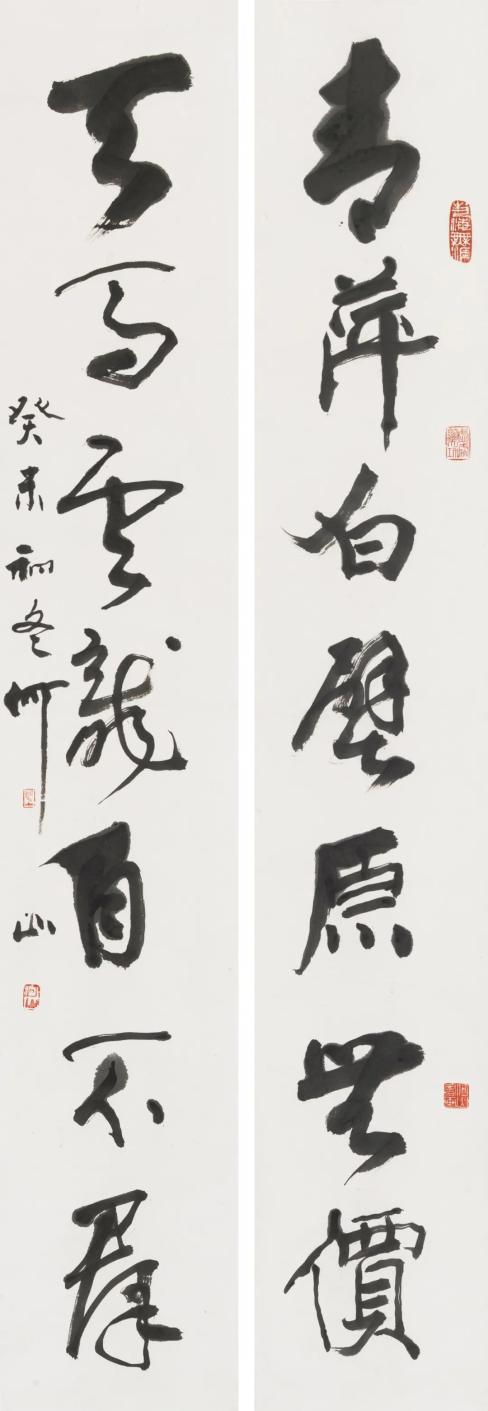 青萍白璧原無價
天馬雲龍自不群
癸未初冬 山